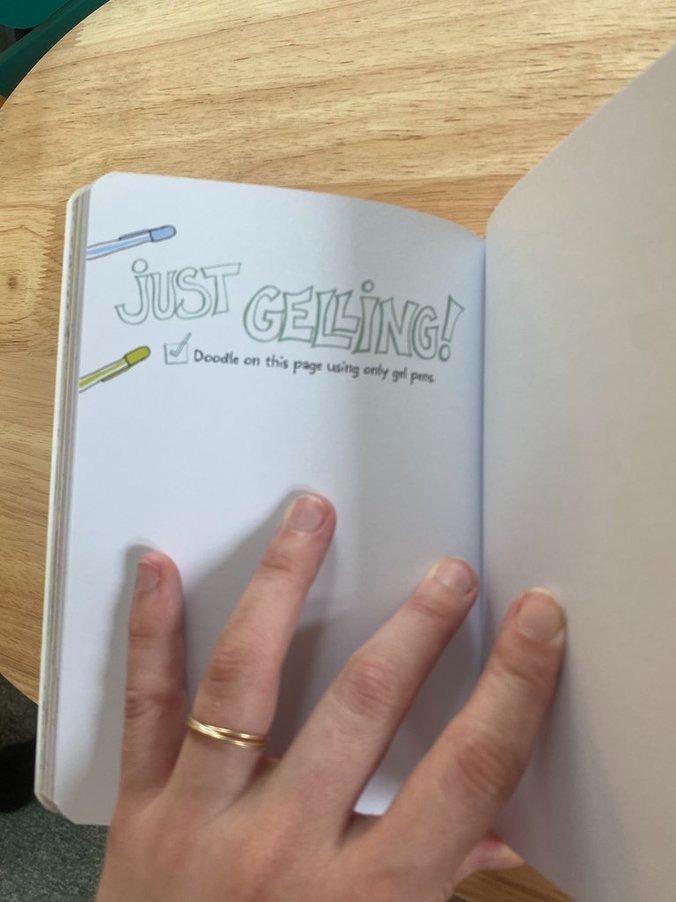 JUST GELLING!
Doodle on this page using only gel pens.